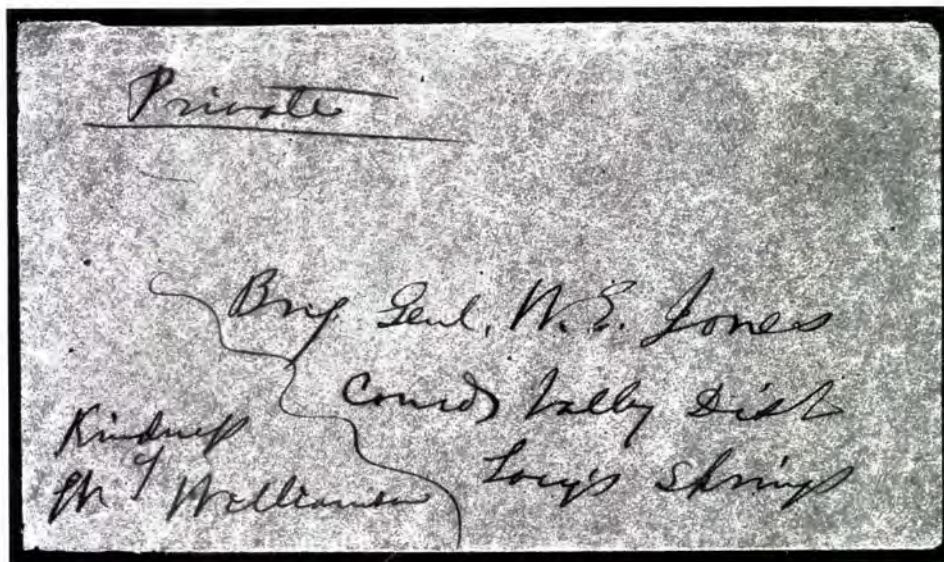 Private
Brig. Genl, W. E. Jones
Comdg Valley Dist
Springs
Kindness
of
Mr Williamson